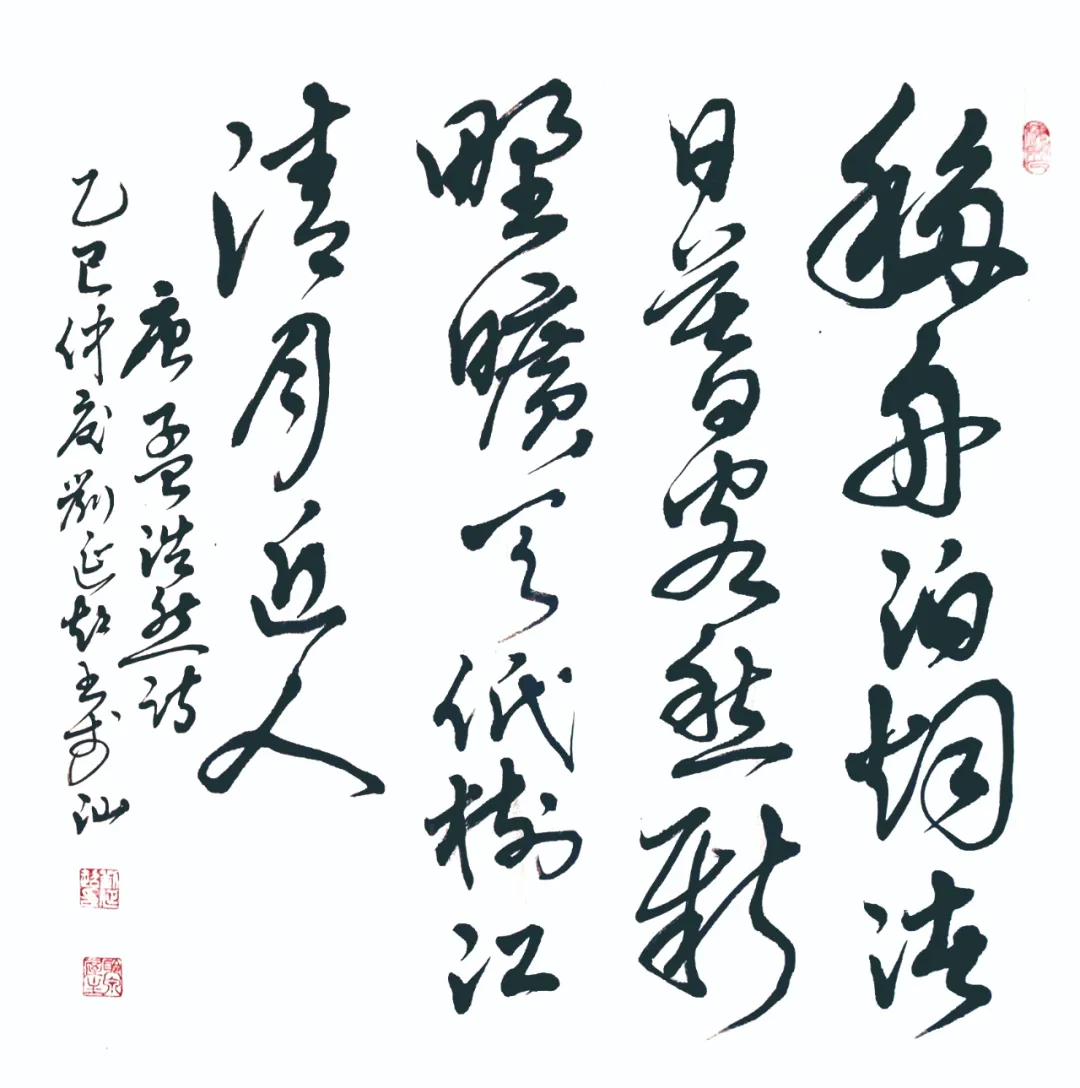 移舟泊烟渚
日暮客愁新
野曠天低樹江
清月近人
唐孟浩然詩
乙巳仲夏劉延超书於汕